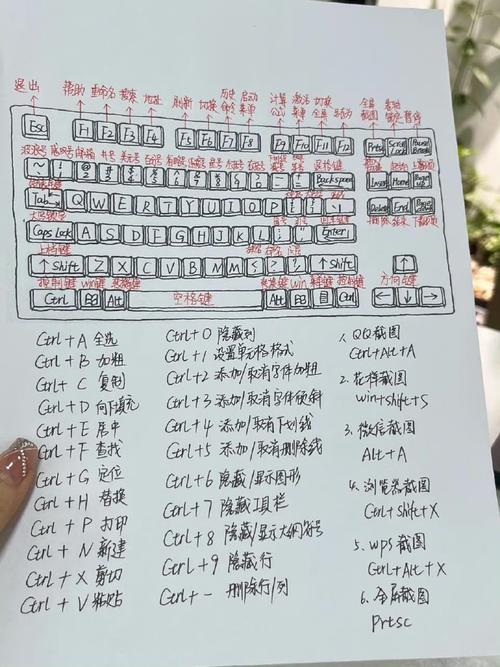 退出 帮助 重命名 搜索 地址 刷新 切换 历史命令 启动菜单 计算公式 激活 切换 全屏 另存为 全屏截图 暂停
Esc F1 F2 F3 F4 F5 F6 F7 F8 F9 F10 F11 F12 Prtsc Scroll Lock Pause Break
退格键
Backspace Insert Home Page up
Tab Q W E R T Y U I O P
Delete End Page down
大写锁定 回车键
Caps Lock A S D F G H J K L Enter
上档键
↑Shift Z X C V B N M ↑Shift ↑
控制键 win键 win 控制键 方向键
Ctrl Alt 空格键 Alt Ctrl ← ↓ →
Ctrl + A 全选
Ctrl + B 加粗
Ctrl + C 复制
Ctrl + D 向下填充
Ctrl + E 居中
Ctrl + F 查找
Ctrl + G 定位
Ctrl + H 替换
Ctrl + P 打印
Ctrl + N 新建
Ctrl + X 剪切
Ctrl + V 粘贴
Ctrl + 0 隐藏列
Ctrl + 1 设置单元格格式
Ctrl + 2 添加/取消字体加粗
Ctrl + 3 添加/取消字体倾斜
Ctrl + 4 添加/取消下划线
Ctrl + 5 添加/取消删除线
Ctrl + 6 隐藏/显示图形
Ctrl + 7 隐藏工具栏
Ctrl + 8 隐藏/显示大纲符号
Ctrl + 9 隐藏行
Ctrl + - 删除行/列
1、QQ截图
Ctrl+Alt+A
2、花样截图
win+shift+S
3、微信截图
Alt+A
4、浏览器截图
Ctrl+Shift+X
5、WPS截图
Ctrl+Alt+X
6、全屏截图
Prtsc